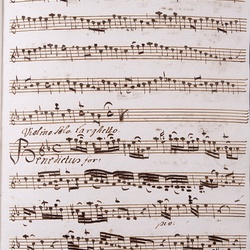 Violino Solo Larghetto
Benedictus for:
pio.